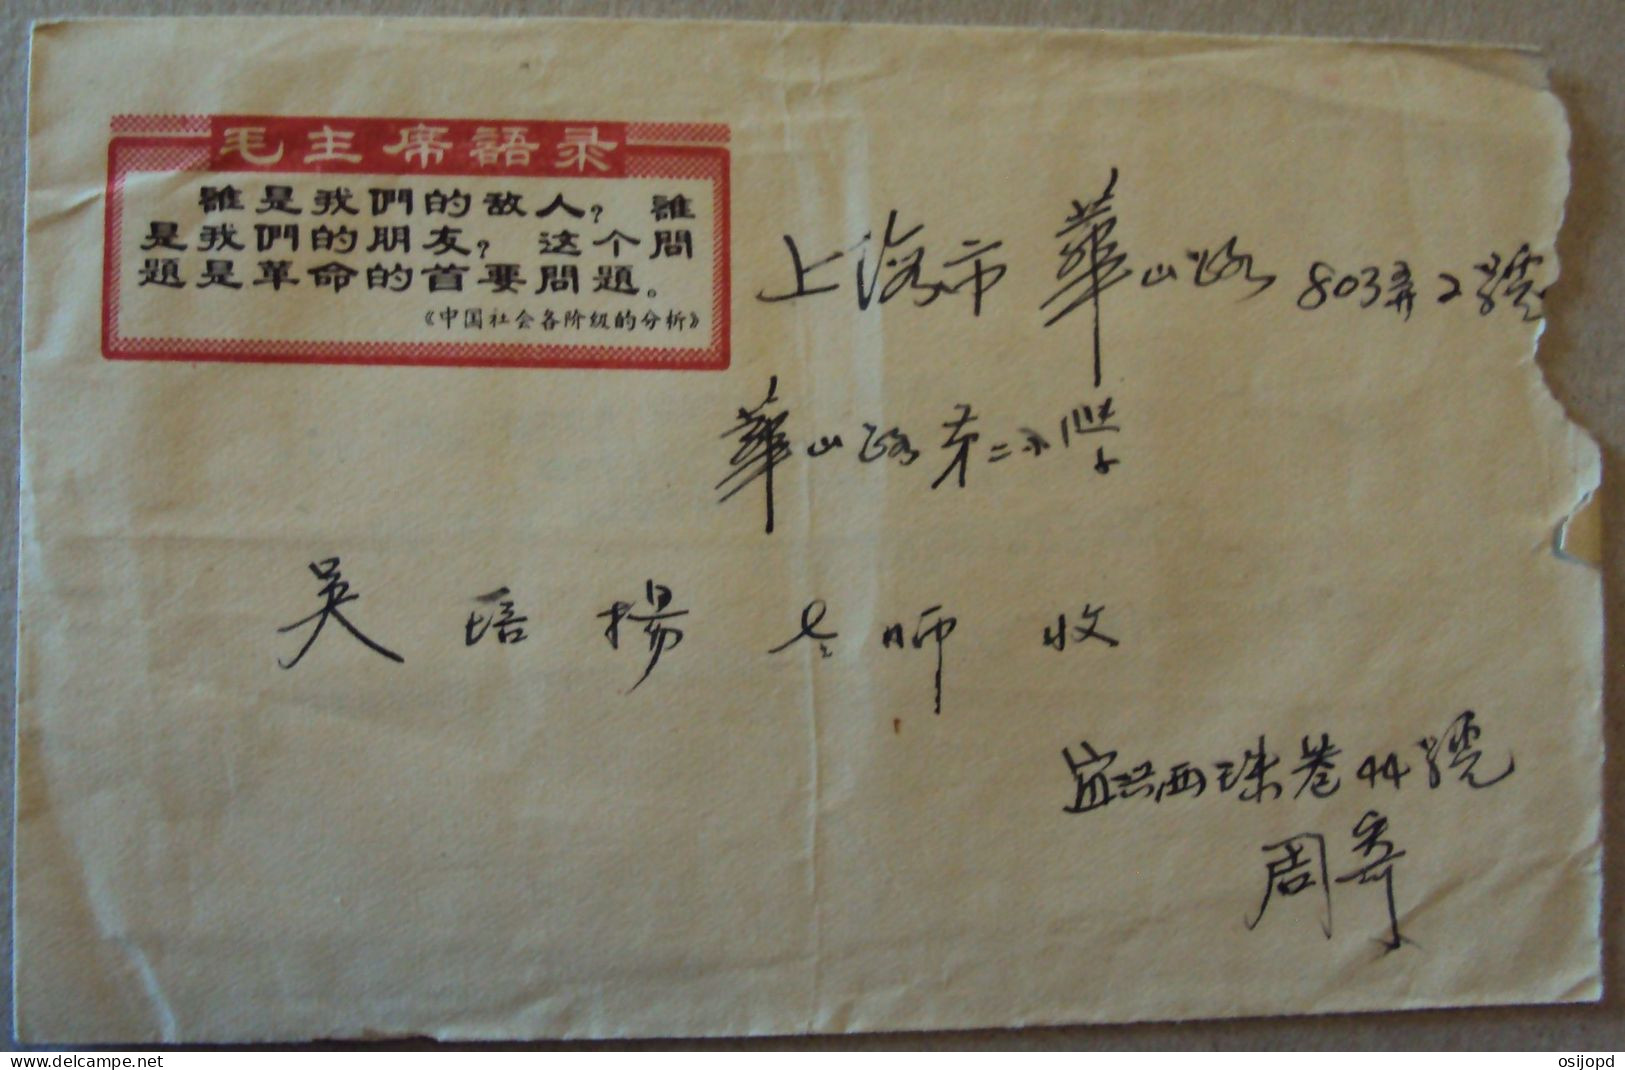 毛主席語录
誰是我們的敌人？誰
是我們的朋友？这个問
題是革命的首要問題。
《中国社会各阶级的分析》
上海市華山路803弄2號
華山路第二小學
吴培揚老师收
宜兴西珠巷44號
周寄
www.delcampe.net
osijopd